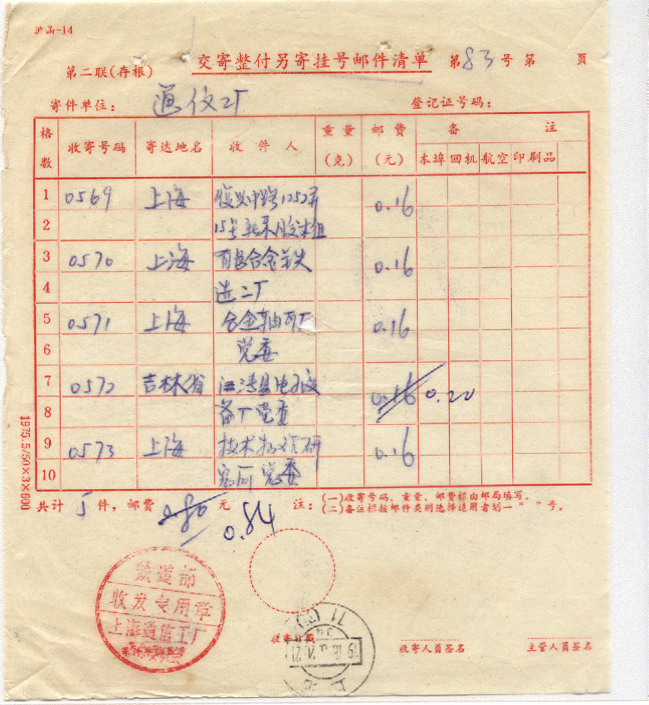 沪函-14
第二联(存根) 交寄整付另寄挂号邮件清单 第83号 第 页
寄件单位: 通仪二厂 登记证号码:
格数 收寄号码 寄达地名 收件人 重量(克) 邮费(元) 备注
本埠 回机 航空 印刷品
1 0569 上海 复兴中路1252弄 0.16
2 15号
3 0570 上海 有色合金 0.16
4 造二厂
5 0571 上海 合金轴瓦厂 0.16
6 党委
7 0572 吉林省 县电子设 0.16 0.20
8 备厂党委
9 0573 上海 技术物理研 0.16
10 究所党委
共计 5 件, 邮费 0.80 元 注: (一)收寄号码、重量、邮费栏由邮局填写。
0.84 (二)备注栏按邮件类别选择适用者划一“ ”号。
1975.5/50×3×600
铁道部
收发专用章
上海通信工厂
收寄日戳 收寄人员签名 主管人员签名